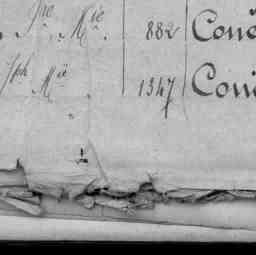 Jne Mie. 882 Coué
Jph Mie 1347 Coué